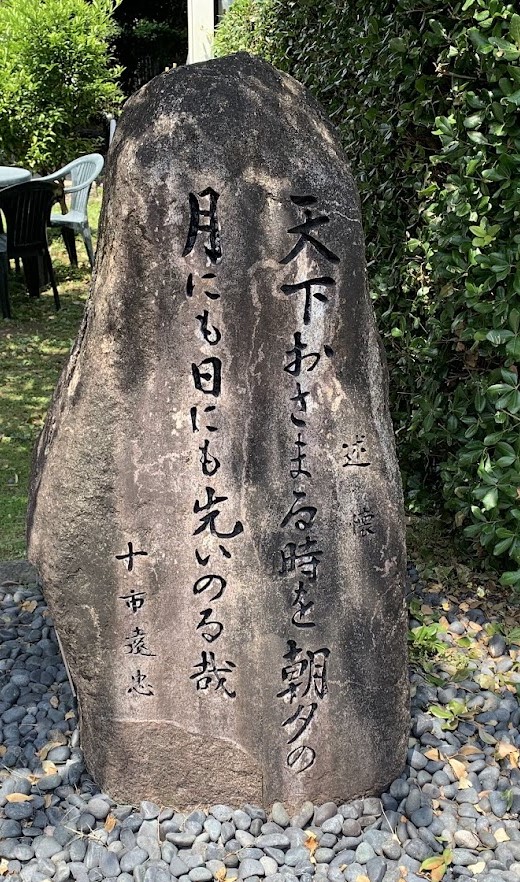 述懐
天下おさまる時を朝夕の
月にも日にも先いのる哉
十市遠忠